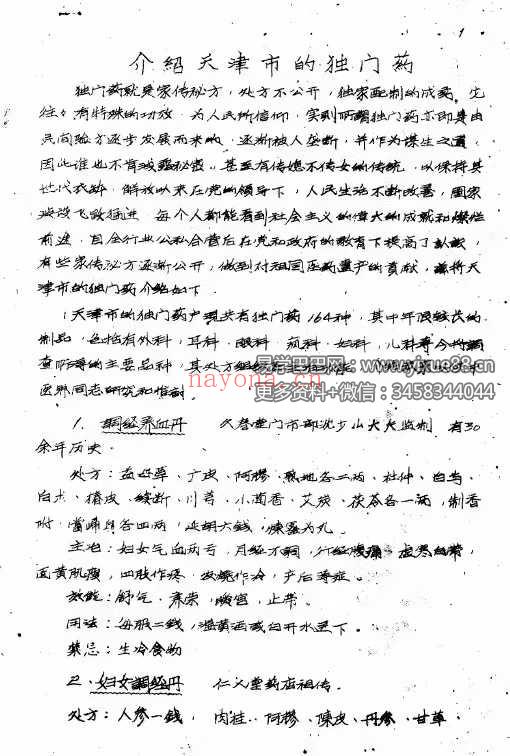 1
介绍天津市的独门药
独门药就是家传秘方，处方不公开，独家配制的成药，它
往々有特殊的功效，为人民所信仰，实则所谓独门药亦即是由
民间验方逐步发展而来的，逐渐被人垄断，并作为谋生之道，
因此谁也不肯泄露秘密。甚至有传媳不传女的传统，以保持其
世代衣钵，解放以来在党的领导下，人民生活不断改善，国家
建设飞跃猛进，每个人都能看到社会主义的伟大的成就和
前进，自全行业公私合营后在党和政府的教育下提高了
有些家传秘方逐渐公开，做到对祖国医药遗产的贡献，兹将天
津市的独门药介绍如下。
天津市的独门药户现共有独门药164种，其中年限较长的
制品，包括有外科，耳科，眼科，疮科，妇科，儿科等今将调
查所得的主要品种，其处方组
医界同志研究和推荐
易学巴巴网：www.yixue88.cn
nayona.cn
更多资料+微信：3458344044
1. 调经养血丹 久春堂门市部沈步山大夫监制 有30
余年历史。
处方：益母草、广皮、阿胶、熟地各二两、杜仲、白芍、
白术、橘皮、续断、川芎、小茴香、艾炭、茯苓各一两，制香
附、当归身各四两，延胡六钱，炼蜜为丸。
主治：妇女气血两亏，月经不调，行经腹痛，虚寒白带，
面黄肌瘦，四肢作疼，发烧作冷，产后等症。
效能：舒气，养荣，暖宫，止带。
用法：每服二钱，温黄酒或白开水送下。
禁忌：生冷食物
2. 妇女调经丹 仁义堂药店祖传。
处方：人参一钱，肉桂、阿胶、陈皮、丹参、甘草、